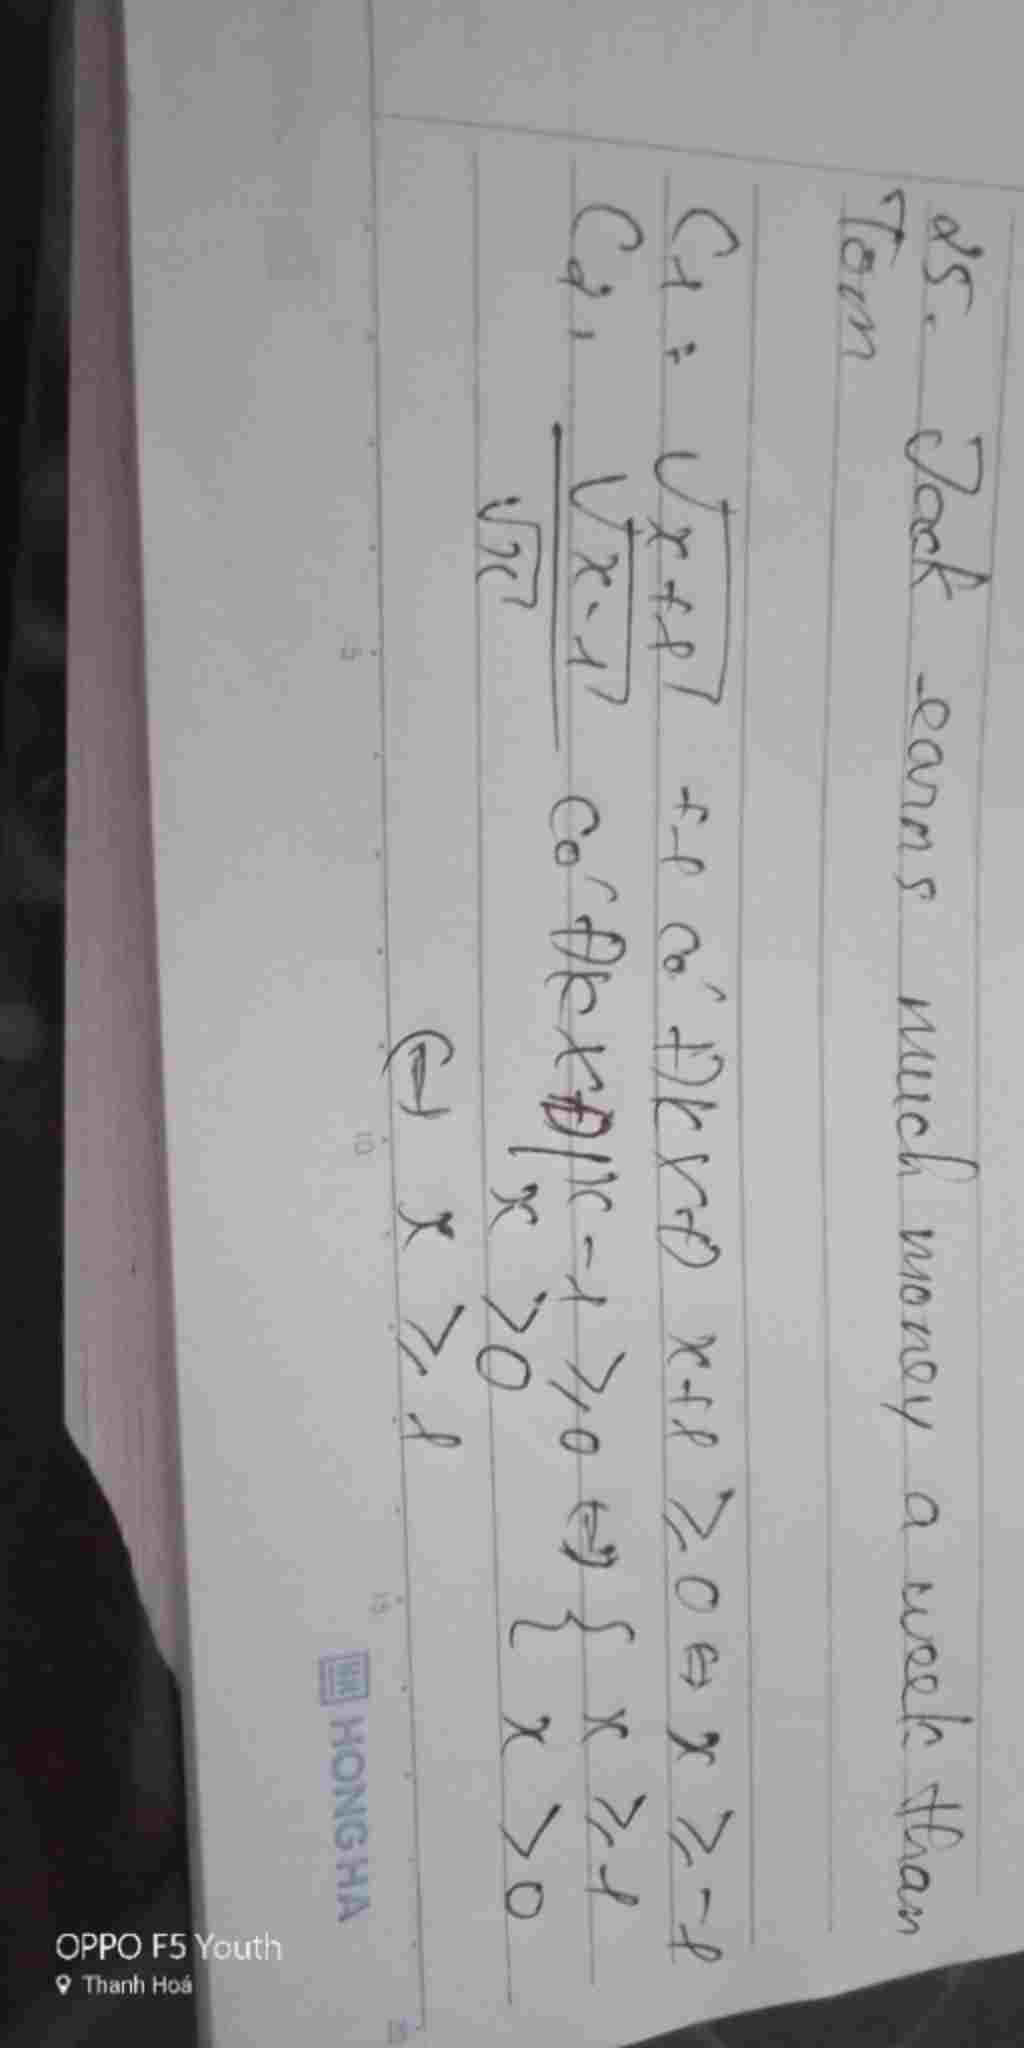 25. Jack earns much money a week than
Tom
C1: √x+1 +1 có đk xđ x+1 ≥ 0 ⇔ x ≥ -1
C2, √x-1 có đk xđ x-1 ≥ 0 ⇔ { x ≥ 1
√x x > 0 { x > 0
⇔ x ≥ 1
5 10 15 20
HONG HA
OPPO F5 Youth
Thanh Hoá